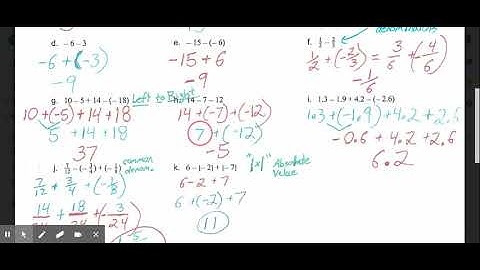 denominators
d. −6 − 3
−6 + (−3)
−9
e. −15 − (−6)
−15 + 6
−9
f. 1/2 − 2/3
1/2 + (−2/3) = 3/6 + (−4/6)
−1/6
g. 10 − 5 + 14 − (−18)
Left to Right
10 + (−5) + 14 + 18
5 + 14 + 18
37
h. 14 − 7 − 12
14 + (−7) + (−12)
7 + (−12)
−5
i. 1.3 − 1.9 + 4.2 − (−2.6)
1.3 + (−1.9) + 4.2 + 2.6
−0.6 + 4.2 + 2.6
6.2
common
denom.
7/12 + 3/4 + (−1/8)
14/24 + 18/24 + (−3/24)
k. 6 − |−2| + |−7|
"|x|" Absolute
Value
6 − 2 + 7
6 + (−2) + 7
11